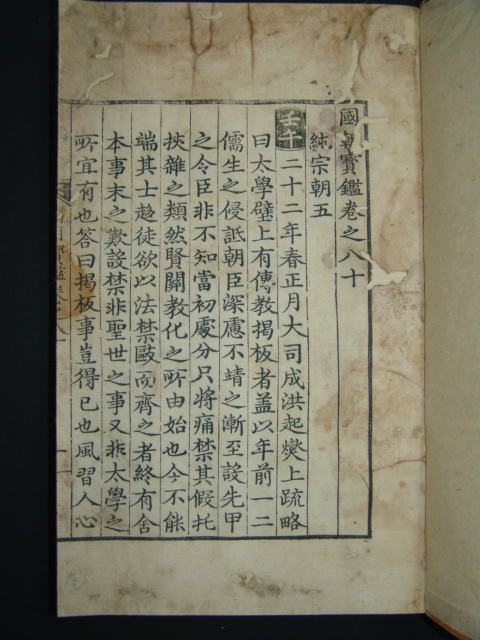 國朝寶鑑卷之八十
純宗朝五
壬午 二十二年春正月大司成洪起燮上疏略
曰太學壁上有傳教揭板者盖以年前一二
儒生之侵詆朝臣深慮不靖之漸至設先甲
之令臣非不知當初處分只將痛禁其假托
挾雜之類然賢關教化之所由始也今不能
端其士趍徒欲以法禁敺而齊之者終有舍
本事末之歎設禁非聖世之事又非太學之
所宜有也答曰揭板事豈得已也風習人心